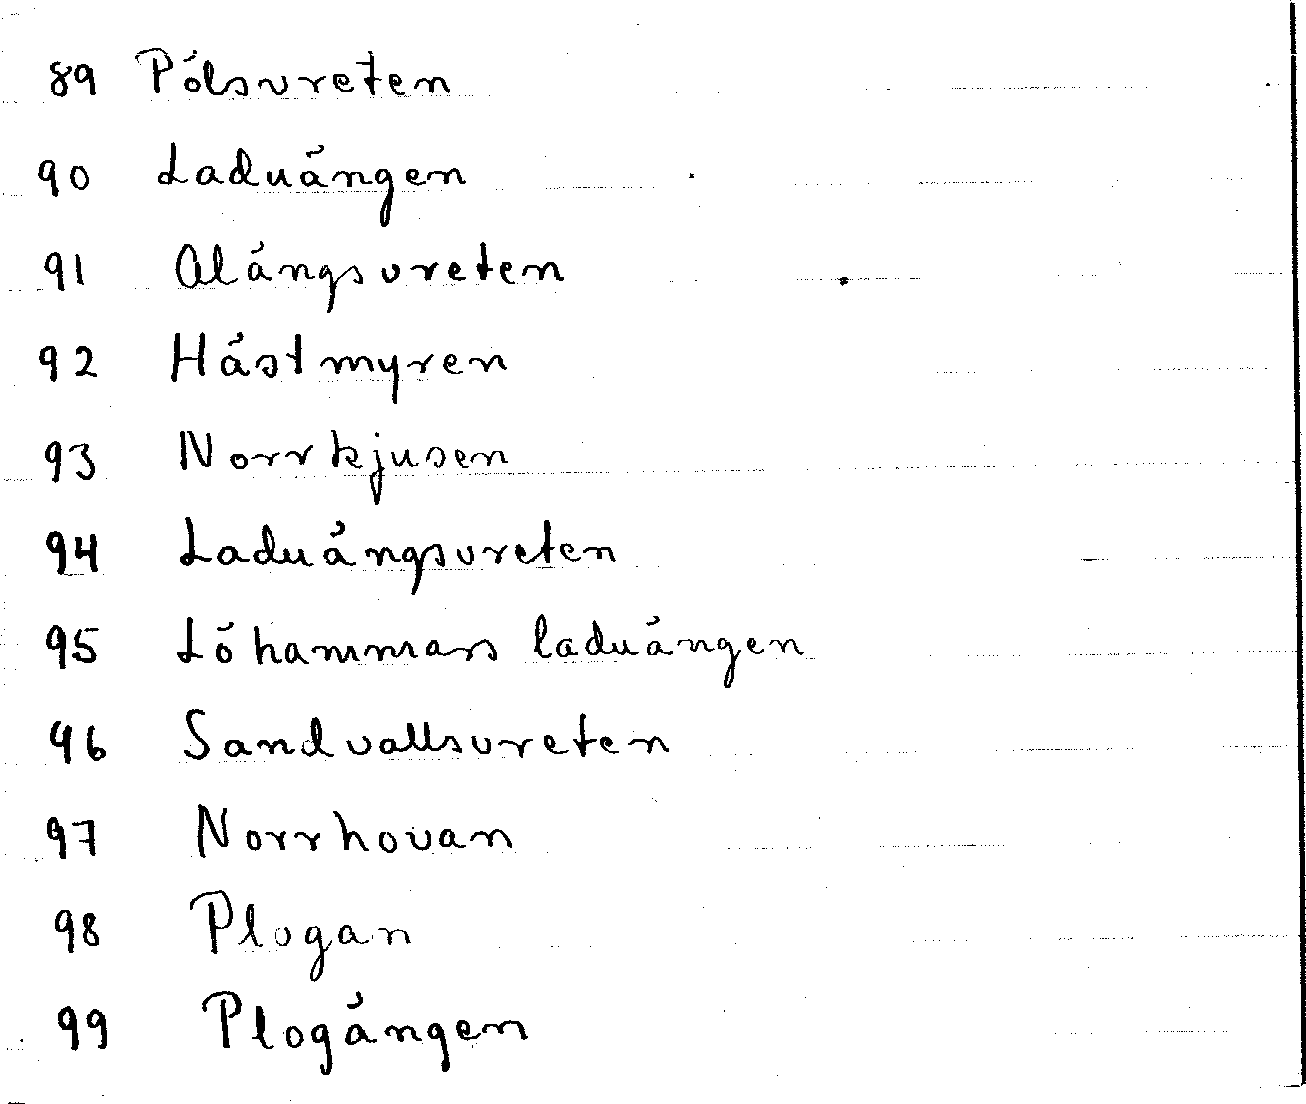 89 Pölsvreten
90 Laduängen
91 Alängsvreten
92 Hästmyren
93 Norrkjusen
94 Laduängsvreten
95 Löhammars laduängen
96 Sandvallsvreten
97 Norrhovan
98 Plogan
99 Plogängen